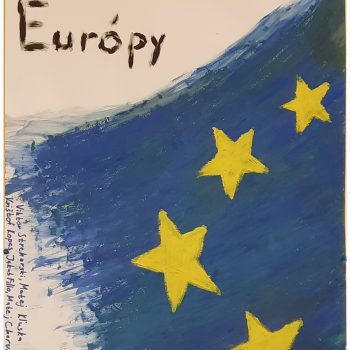 Európy
Viktor Strckarski, Matej Kluska
Krištof Kopas, Jakub Fillo, Matej Chorv